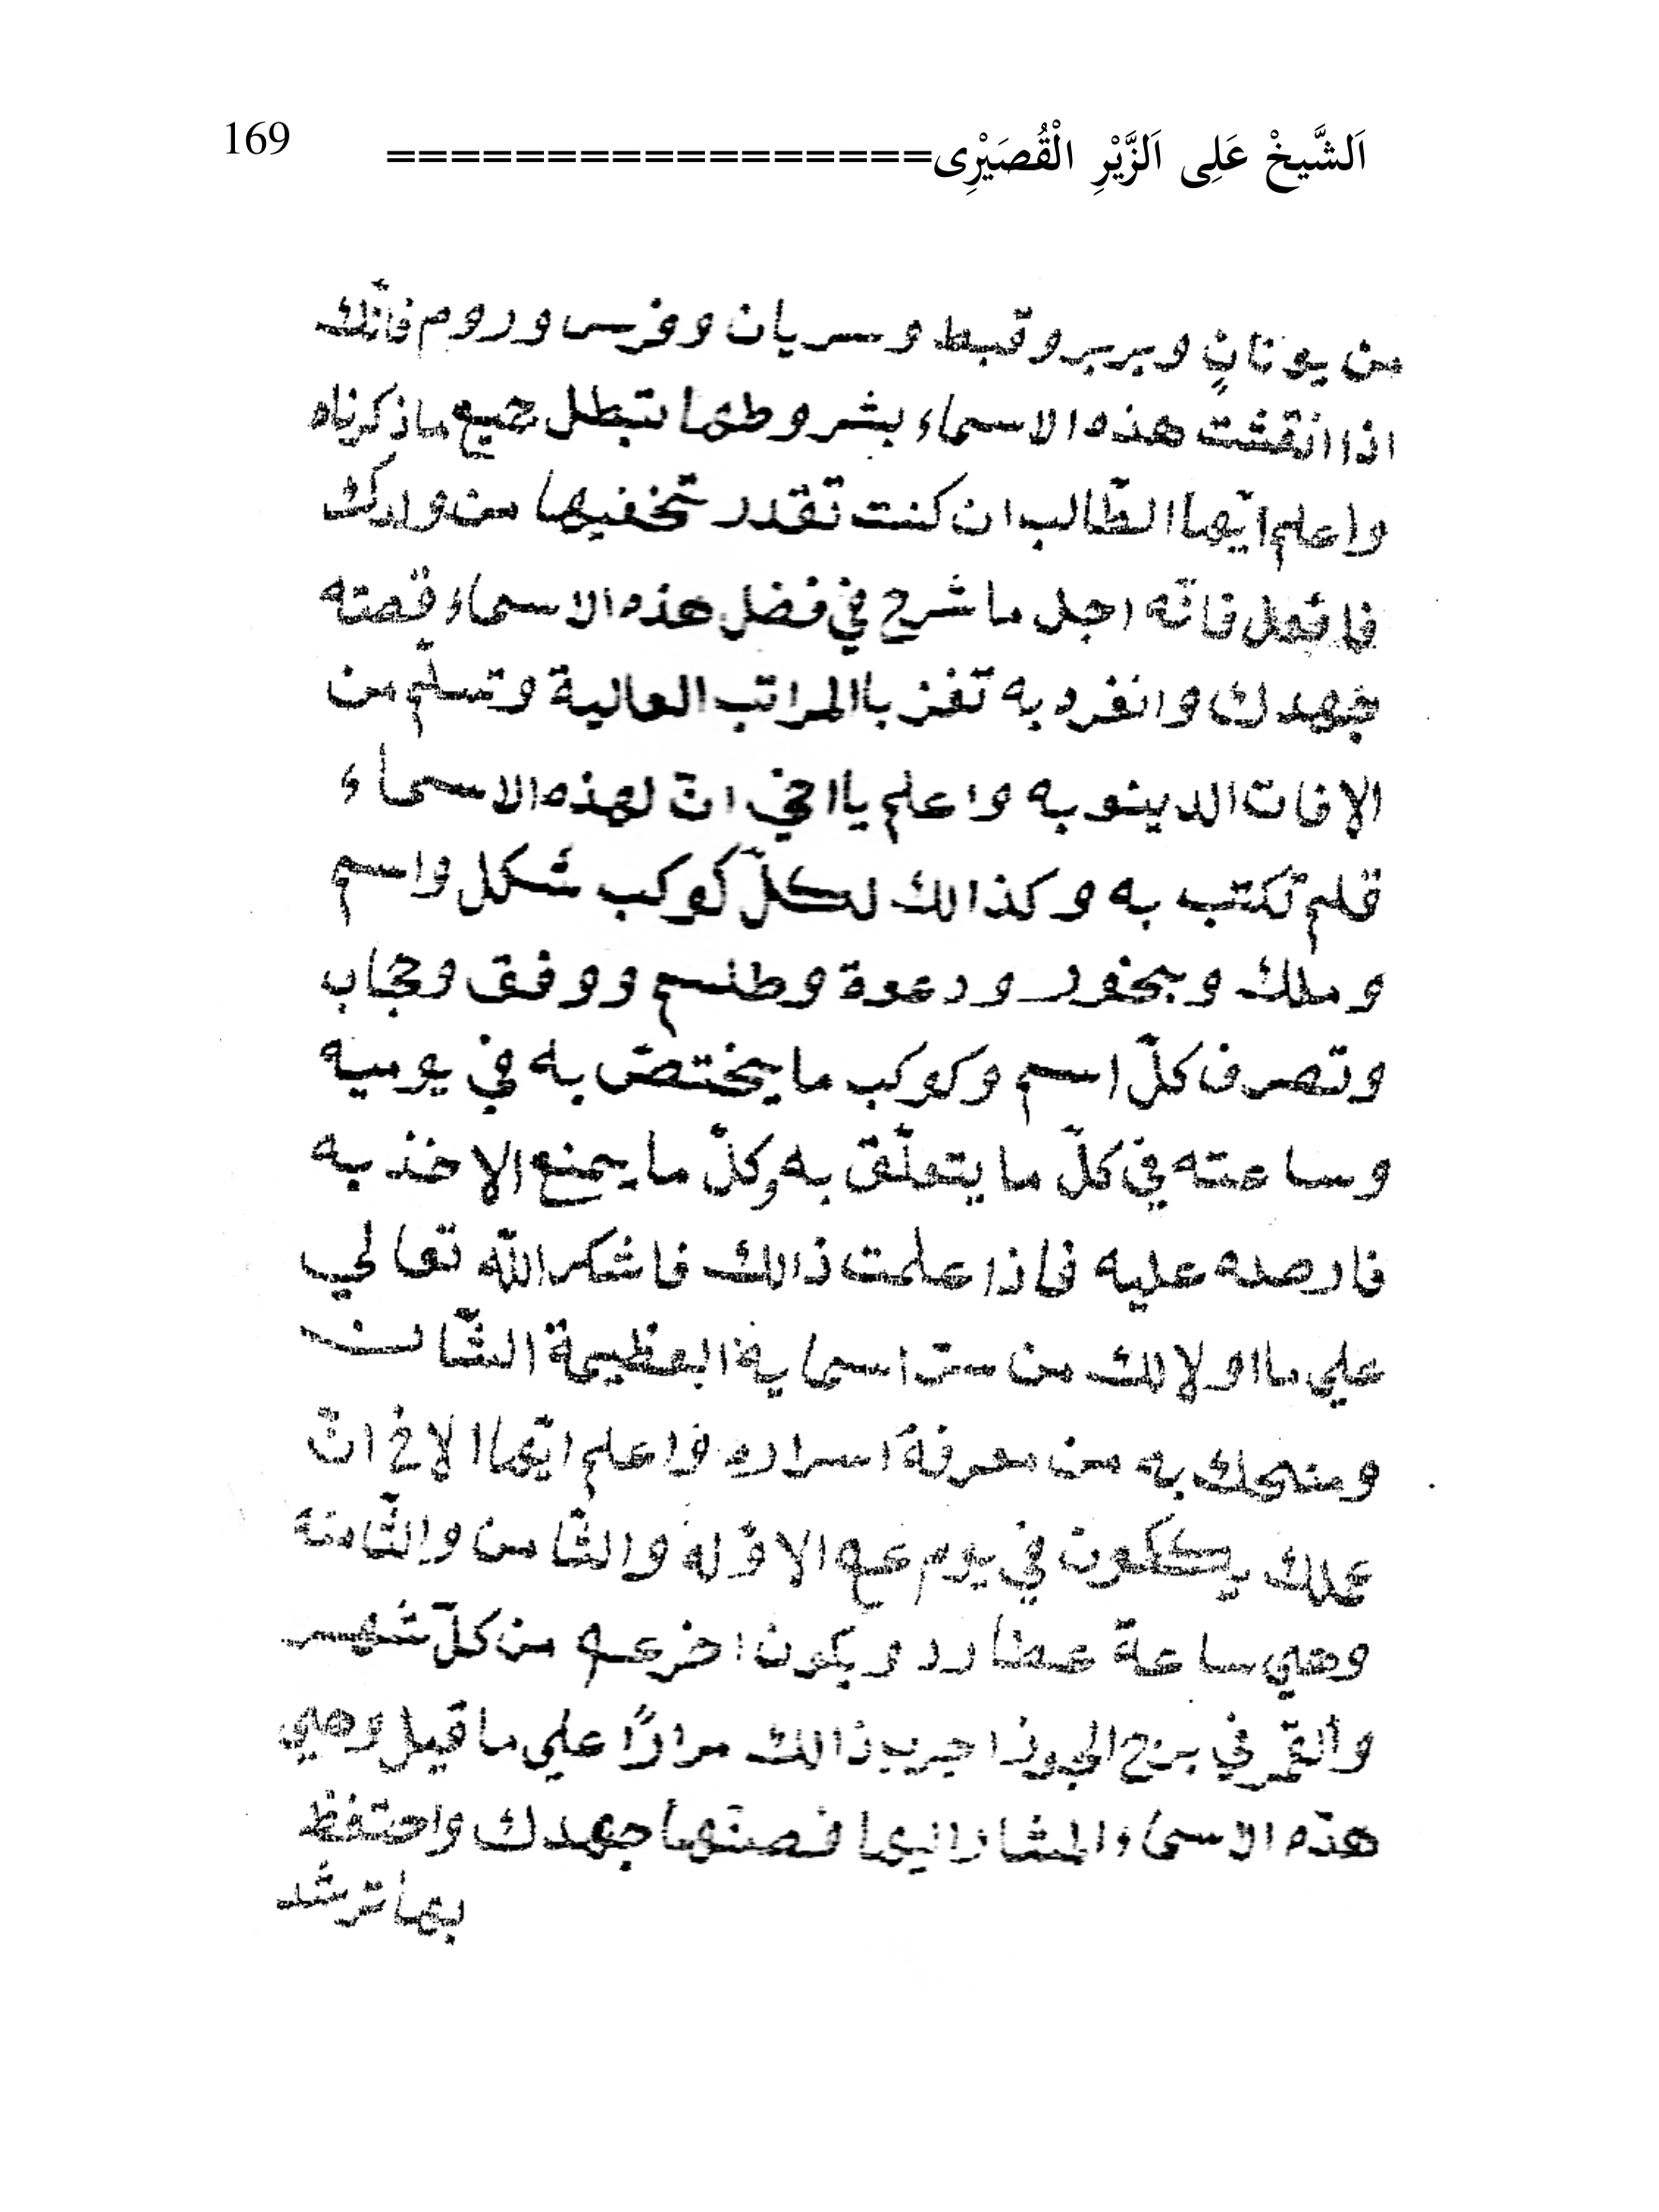 اَلشَّيخْ عَلِى اَلزَّيْرِ الْقُصَيْرِى================= 169
من يونانٍ وبربر وقبط وسريان وفرس وروم فانّك
اذا انقشت هذه الاسماء بشروطها تبطل جميع ماذكرناه
واعلم ايّها الطّالب ان كنت تقدر تخفيها من ولدك
فافعل فانّه اجل ما شرح في فضل هذه الاسماء فصنه
جهدك وانفرد به تفز باالمراتب العالية وتسلّم من
الافات الدينويه واعلم يااخي انّ لهذه الاسماء
قلم تكتب به وكذالك لكلّ كوكب شكل واسم
وملك وبخور ودعوة وطلسم ووفق وحجاب
وتصرف كلّ اسم وكوكب ما يختصّ به في يوميه
وساعته في كلّ ما يتعلّق به وكلّ ما يمنع الاخذ به
فارصده عليه فاذا علمت ذالك فاشكر اللّه تعالي
علي مااولالك من سرّ اسمايۀ العظيمة الشّان
ومنحك به من معرفة اسراره فاعلم ايّهاالاخ انّ
عملك يككون في يوم الاوّله والثّامن والثّامنه
وهي ساعة عطارد ويكون اخر من كلّ شهر
والقمر في برج الجوذا جرب ذالك مرارًا علي ما قيل وهي
هذه الاسماء والمشاراليها فصنها جهدك واحتفظ
بها ترشد